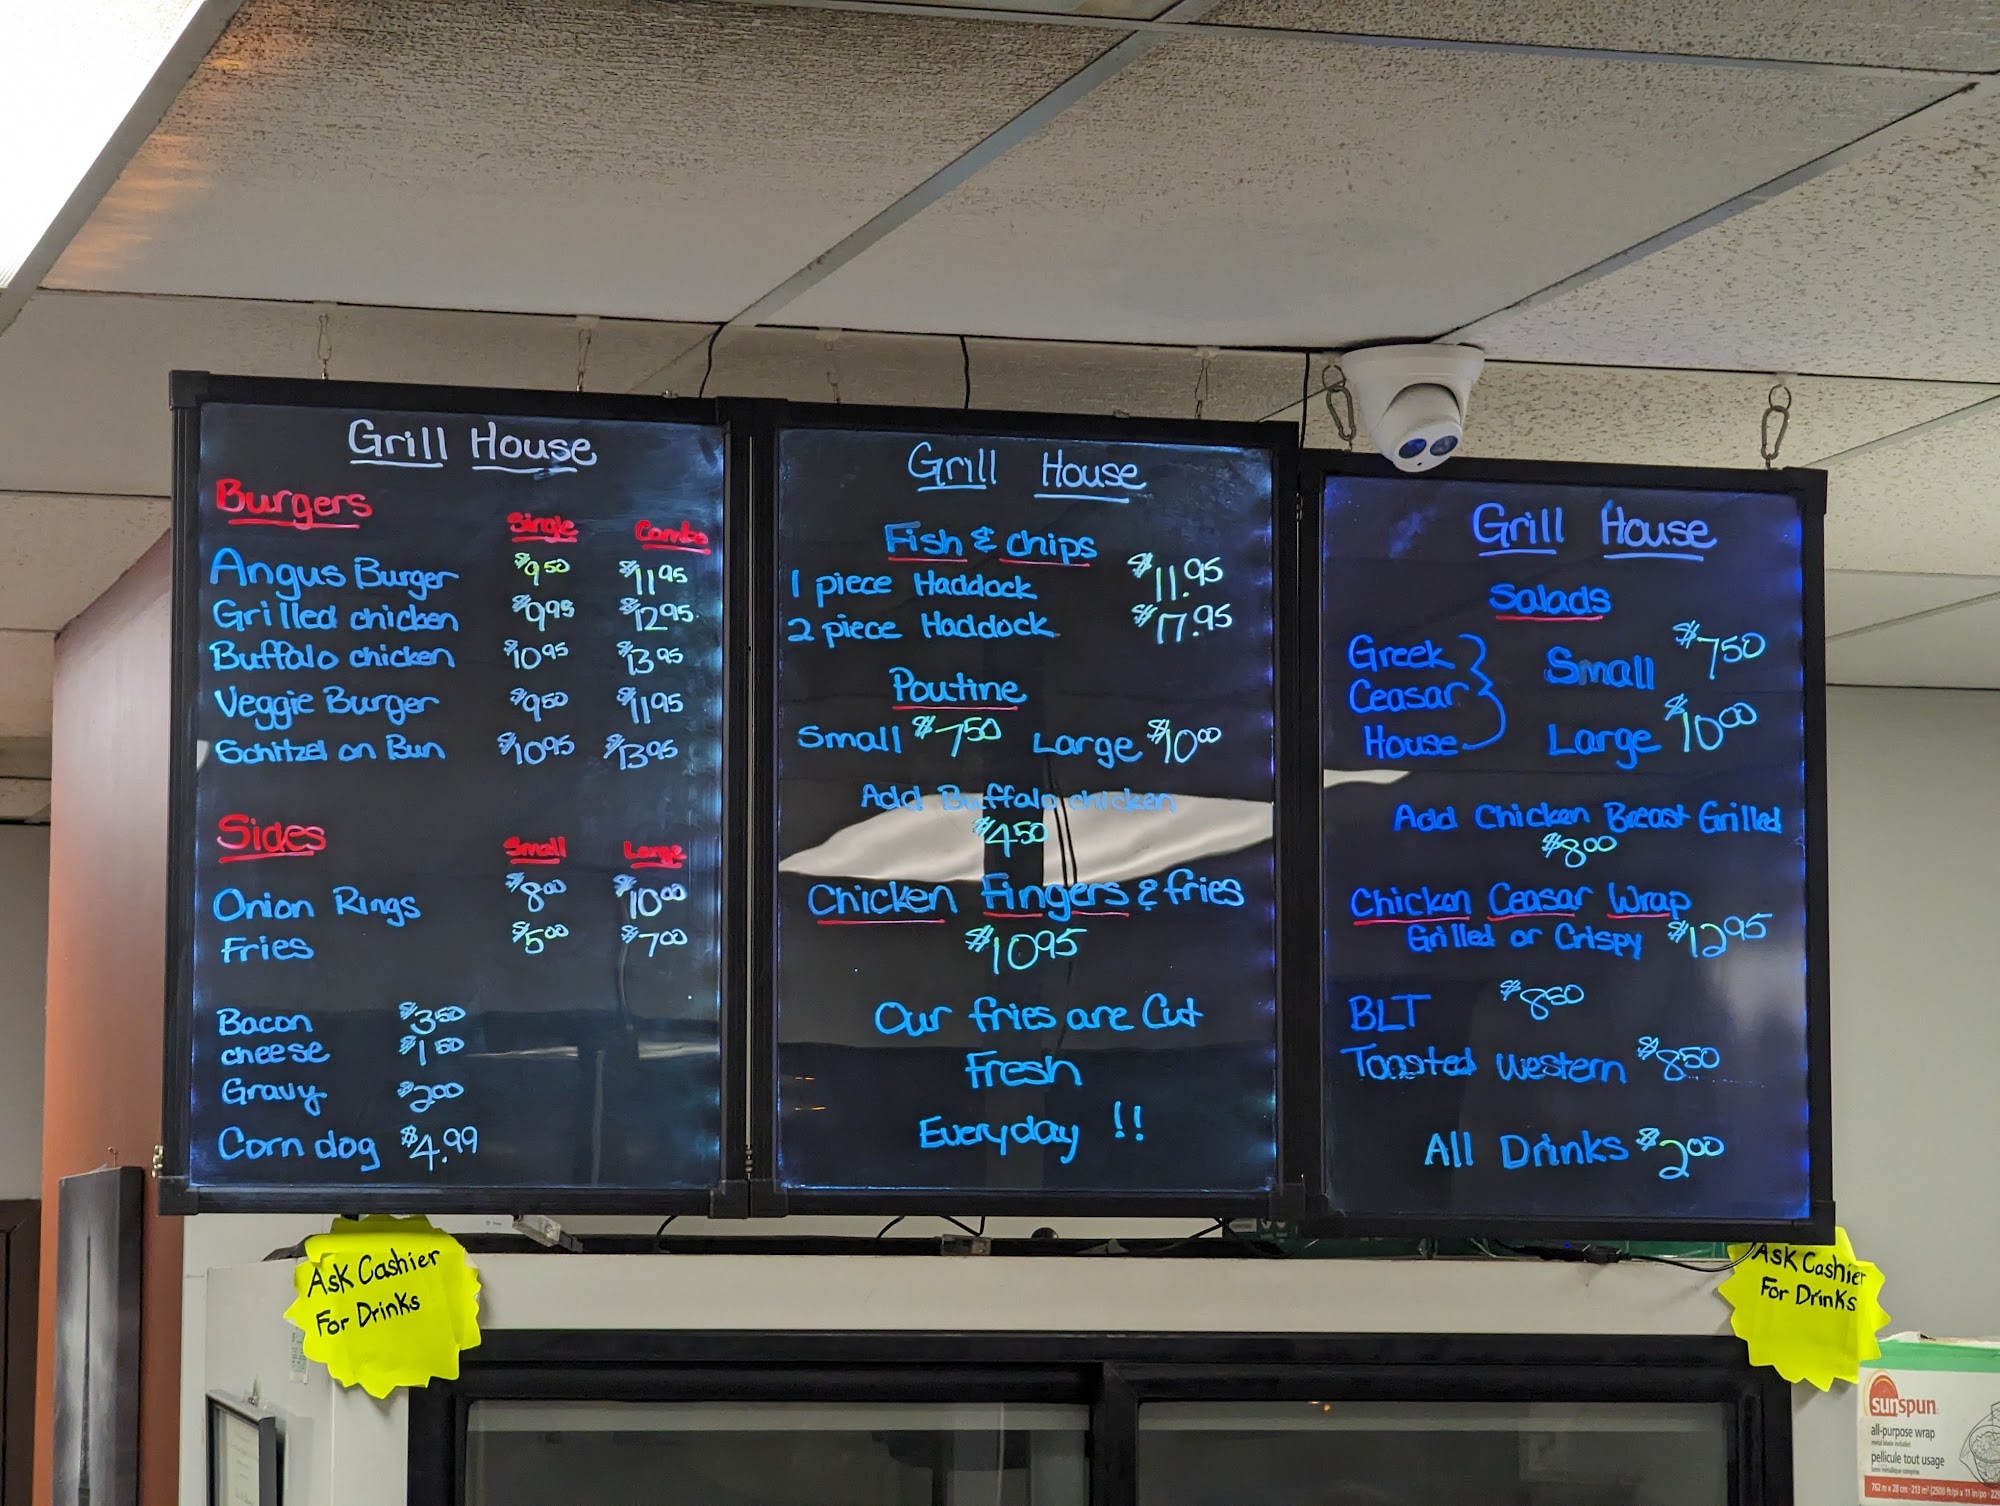 Grill House
Burgers Single Combo
Angus Burger $9.50 $11.95
Grilled chicken $9.95 $12.95
Buffalo chicken $10.95 $13.95
Veggie Burger $9.50 $11.95
Schitzel on Bun $10.95 $13.95
Sides Small Large
Onion Rings $8.00 $10.00
Fries $5.00 $7.00
Bacon $3.50
cheese $1.50
Gravy $2.00
Corn dog $4.99
Grill House
Fish & chips
1 piece Haddock $11.95
2 piece Haddock $17.95
Poutine
Small $7.50 Large $10.00
Add Buffalo chicken
$4.50
Chicken Fingers & fries
$10.95
Our fries are Cut
Fresh
Everyday !!
Grill House
Salads
Greek
Ceasar
House
Small $7.50
Large $10.00
Add Chicken Breast Grilled
$8.00
Chicken Ceasar Wrap
Grilled or Crispy $12.95
BLT $8.50
Toasted Western $8.50
All Drinks $2.00
Ask Cashier
For Drinks
Ask Cashier
For Drinks
sunspun
all-purpose wrap
pellicule tout usage